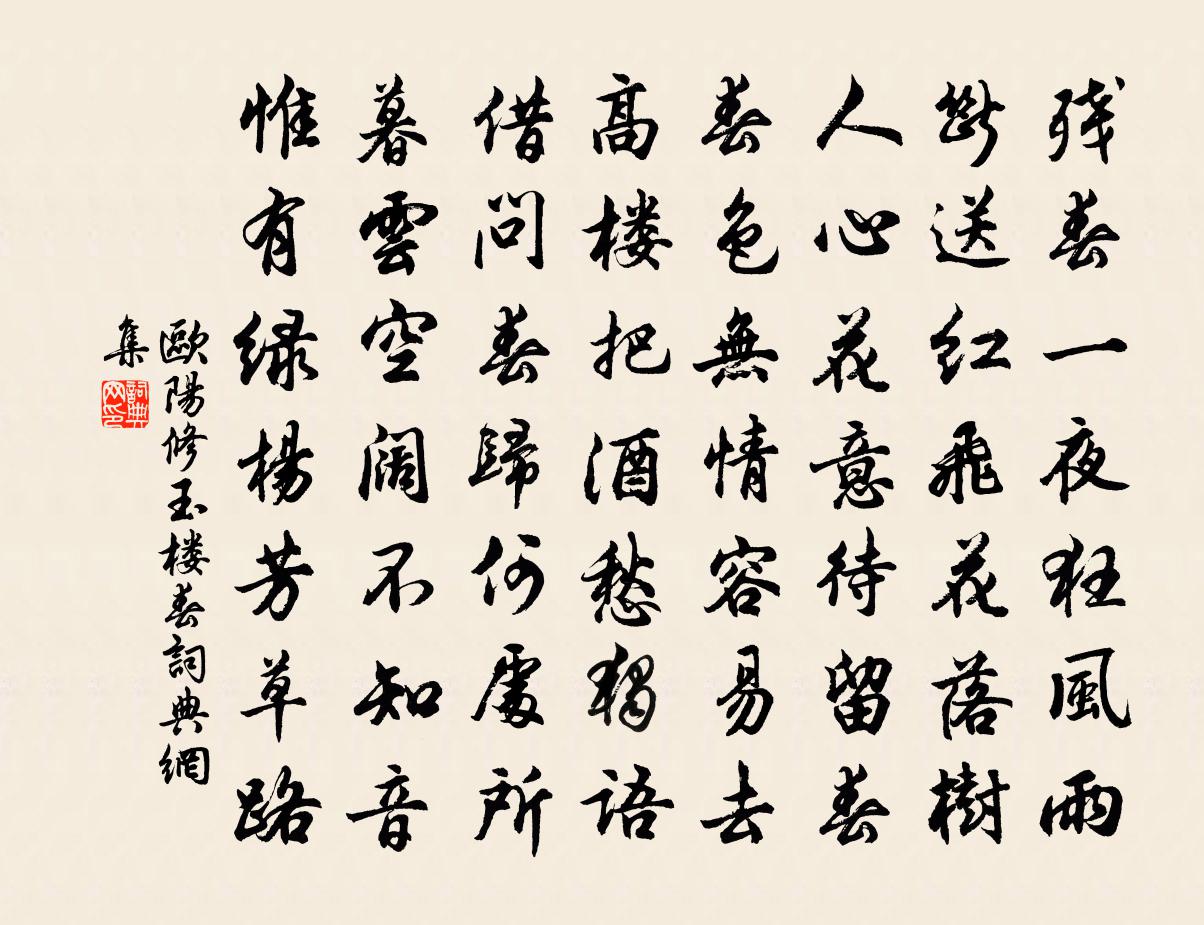 残春一夜狂風雨
斷送紅飛花落樹
人心花意待留春
春色無情容易去
高楼把酒愁獨語
借問春歸何處所
暮雲空闊不知音
惟有緑楊芳草路
歐陽修玉楼春詞典網
集
詞典
网印